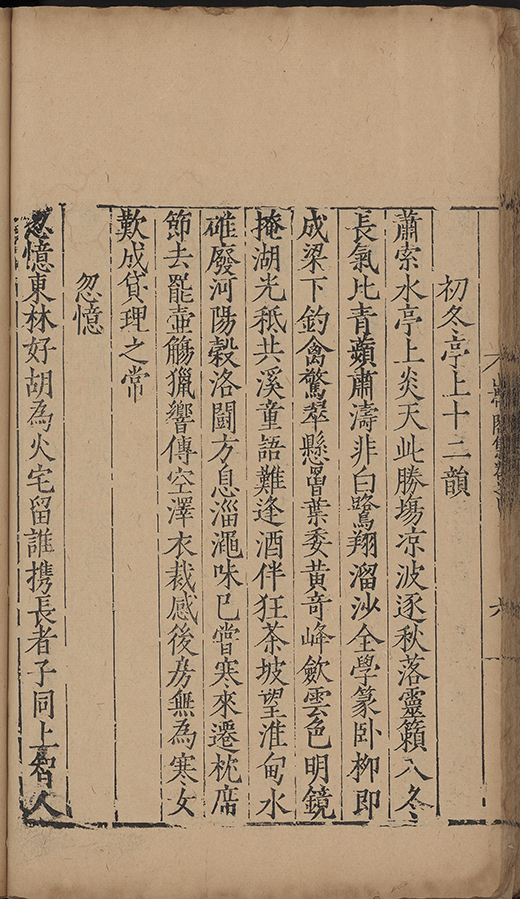 初冬亭上十二韻
蕭索水亭上炎天此勝塲凉波逐秋落靈籟入冬
長氣比青蘋肅濤非白鷺翔溜沙全學篆卧柳即
成梁下釣禽驚翠懸罾葉委黄竒峰歛雲色明鏡
掩湖光秖共溪童語難逢酒伴狂茶坡望淮甸水
碓廢河陽穀洛鬪方息淄澠味已嘗寒來遷枕席
節去罷壺觴獵響傳空澤衣裁感後房無為寒女
歎成貸理之常
忽憶
忽憶東林好胡為火宅留誰攜長者子同上智人
六